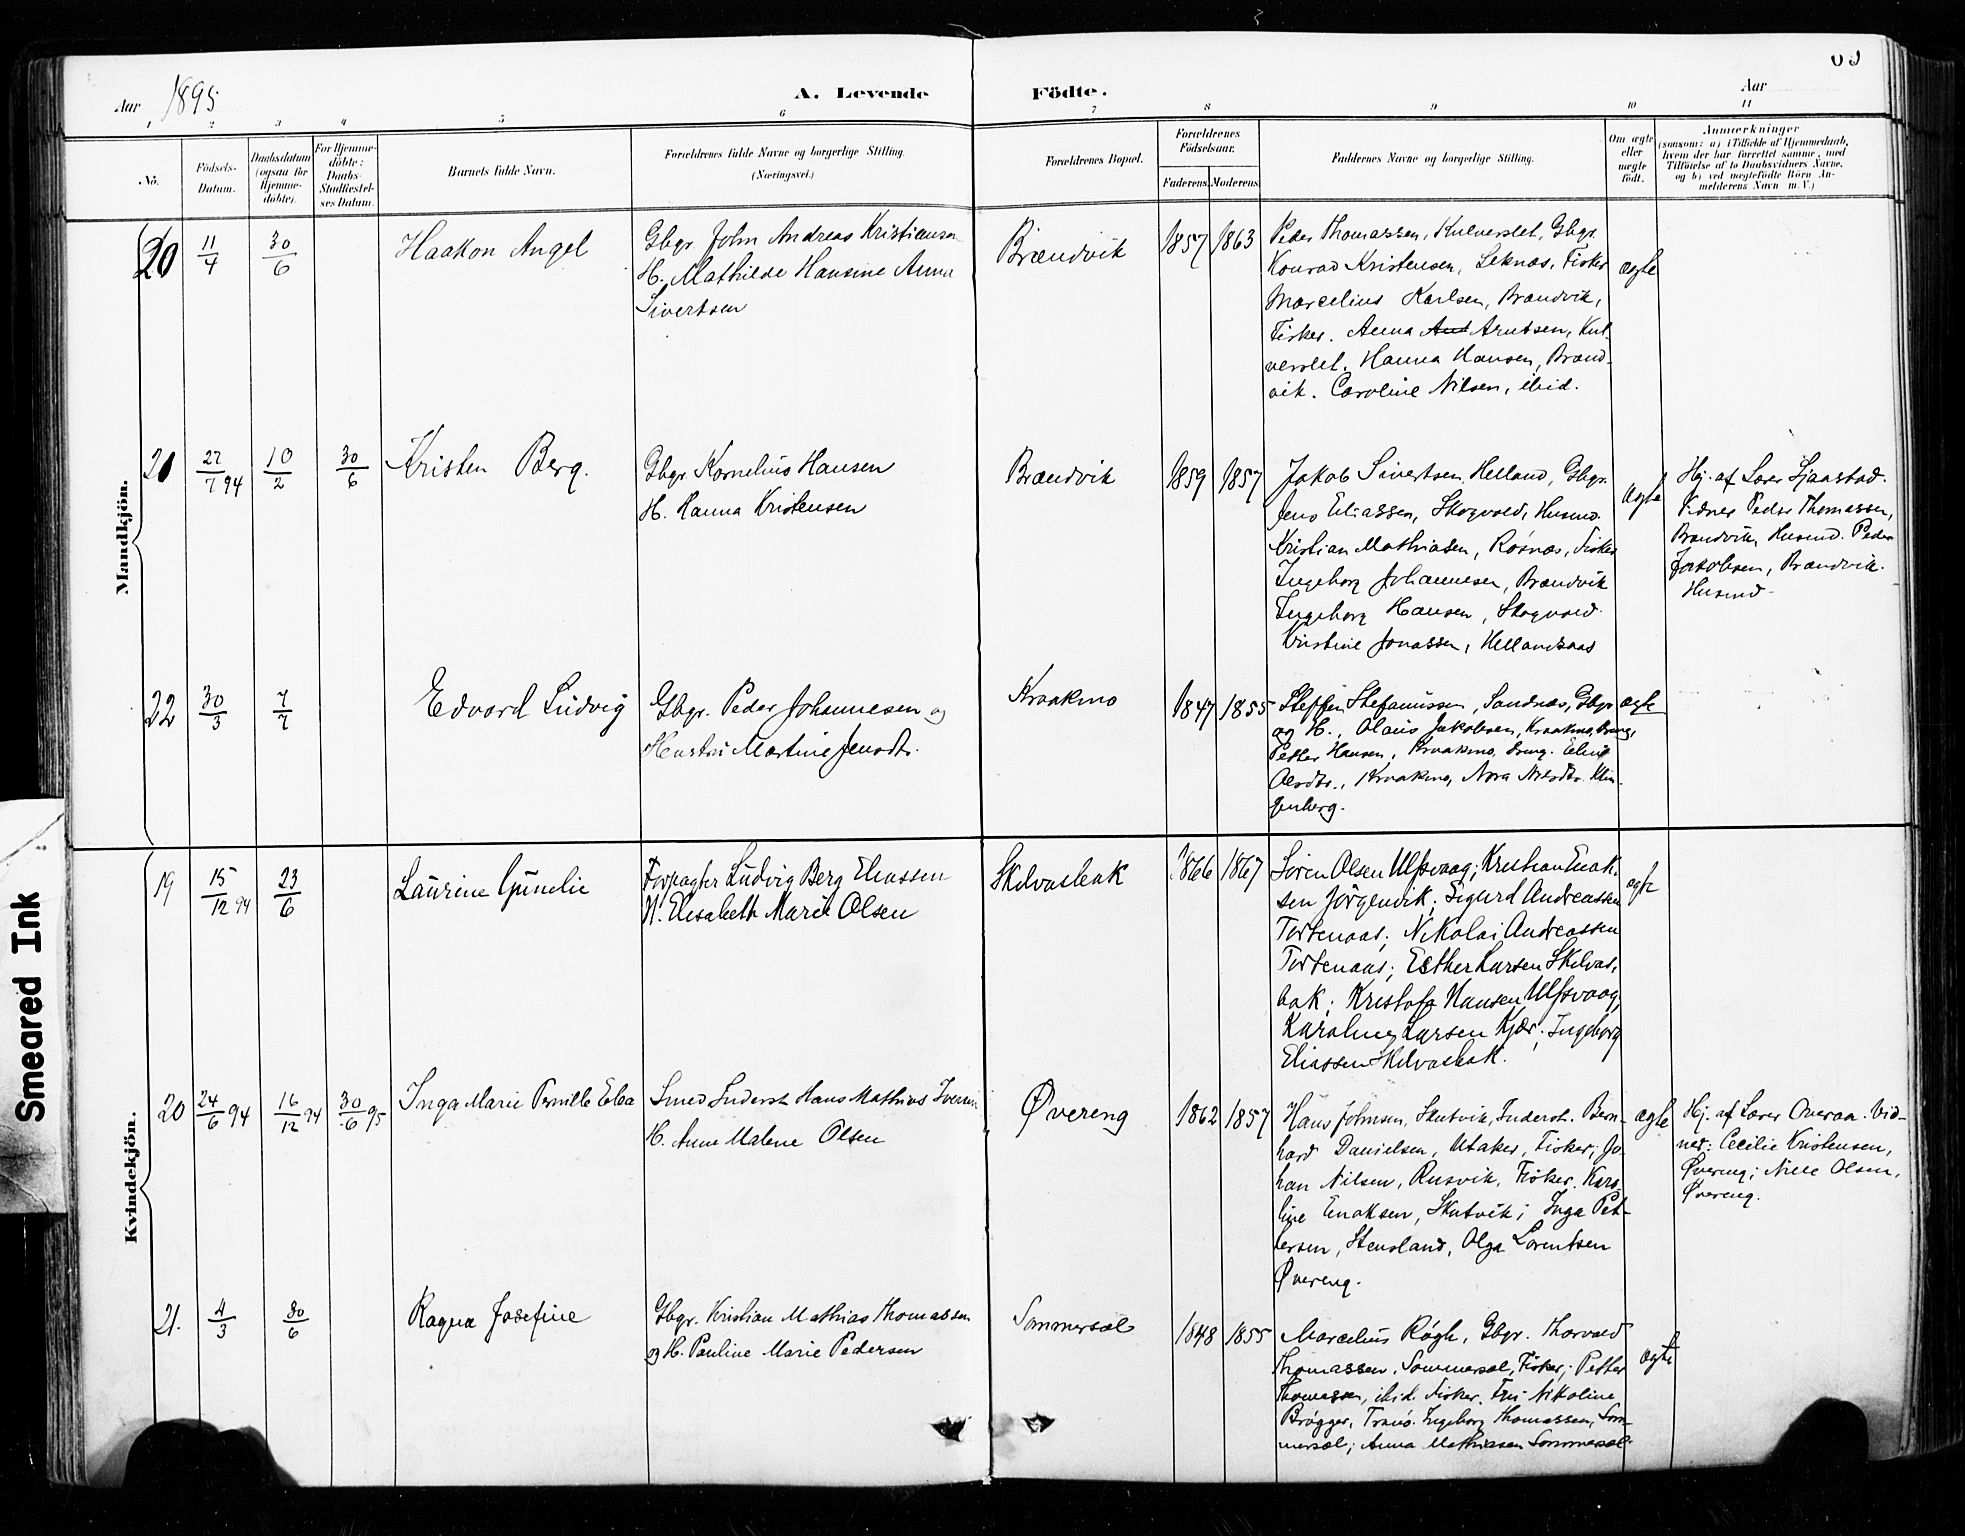 Aar 1895
A. Levende Födte.
Aar
1 2 3 4 5 6 7 8 9 10 11
No.
Födsels-Datum.
Daabsdatum (ogsaa for Hjemme-döbte).
For Hjemme-döbte: Daabs-Stadfæstel-ses Datum.
Barnets fulde Navn.
Forældrenes fulde Navne og borgerlige Stilling.
(Næringsvei.)
Forældrenes Bopæl.
Forældrenes Födselsaar.
Faderens. Moderens.
Faddernes Navne og borgerlige Stilling.
Om ægte eller uægte födt.
Anmærkninger
(saasom: a) i Tilfælde af Hjemmedaab,
hvem der har forrettet samme, med
Tilföielse af to Daabsvidners Navne,
og b) ved uægtefödte Börn An-
melderens Navn m. V.)
Mandkjön.
20
11/4
30/6
Haakon Angel
Gbgr. John Andreas Kristiansen
H. Mathilde Hansine Anna
Sivertsen
Brændvik
1857 1863
Peder Thomassen, Kulverslet, Gbgr.
Konrad Kristensen, Leknæs, Fisker
Marcelius Karlsen, Brændvik,
Fisker. Anna Arntsen, Kul-
verslet. Hanna Hansen, Brænd-
vik. Caroline Nilsen, ibid.
ægte
21
27/7 94
10/2
30/6
Kristen Berg.
Gbgr Kornelius Hansen
H. Hanna Kristensen
Brændvik
1859 1857
Jakob Sivertsen, Helland, Gbgr.
Jens Eliassen, Skogvold, Husmd.
Kristian Mathiasen, Røsnæs, Fisker
Ingeborg Johannesen, Brændvik
Ingeborg Hansen, Skogvold.
Kristine Jonassen, Hellandsaas
ægte
Hj. af Lærer Sjaastad.
Vidner Peder Thomassen,
Brændvik, Husmd. Peder
Jakobsen, Brændvik.
Husmd.
22
30/3
7/7
Edvard Ludvig
Gbgr. Peder Johannesen og
Hustru Martine Jensdtr.
Kraakmo
1847 1855
Steffen Stefanussen, Sandnæs, Gbgr
og H., Olaus Jakobsen, Kraakmo, Dreng,
Petter Hansen, Kraakmo, Dreng. Eline
Olsdtr., Kraakmo, Nora Nilsdtr. Klin-
genberg.
ægte
Kvindekjön.
19
15/12 94
23/6
Laurine Gunelie
Forpagter Ludvig Berg Eliassen
H. Elisabeth Marie Olsen
Skilvasbak
1866 1867
Sören Olsen Ulfsvaag; Kristian Enok-
sen Jörgenvik; Sigurd Andreassen
Tortenaas; Nikolai Andreassen
Tortenaas; Esther Larsen Skilvas-
bak; Kristofa Hansen Ulfsvaag,
Karoline Larsen Kjær; Ingeborg
Eliassen Skilvasbak.
ægte
20
24/6 94
16/12 94
30/6 95
Inga Marie Pernille Ebba
Smed Inderst Hans Mathias Iversen
H. Anne Malene Olsen
Øvereng
1862 1857
Hans Johnsen, Skutvik, Inderst. Bern-
hard Danielsen, Utaker, Fisker; Jo-
han Nilsen, Rusvik, Fisker. Karo-
line Enoksen, Skutvik; Inga Pet-
tersen, Stensland, Olga Lorentsen
Øvereng.
ægte
Hj. af Lærer Overaa. Vid-
ner: Cecilie Kristensen,
Øvereng; Nille Olsen,
Øvereng.
21.
4/3
30/6
Ragna Josefine
Gbgr. Kristian Mathias Thomassen
og H. Pauline Marie Pedersen
Sommersæl
1848 1855
Marcelius Røgh, Gbgr. Thorvald
Thomassen, Sommersæl, Fisker; Petter
Thomassen, ibid. Fisker. Fru Nikoline
Brøgger, Tranö. Ingeborg Thomassen, Som-
mersæl; Anna Mathiasen Sommersæl.
ægte
Smeared Ink